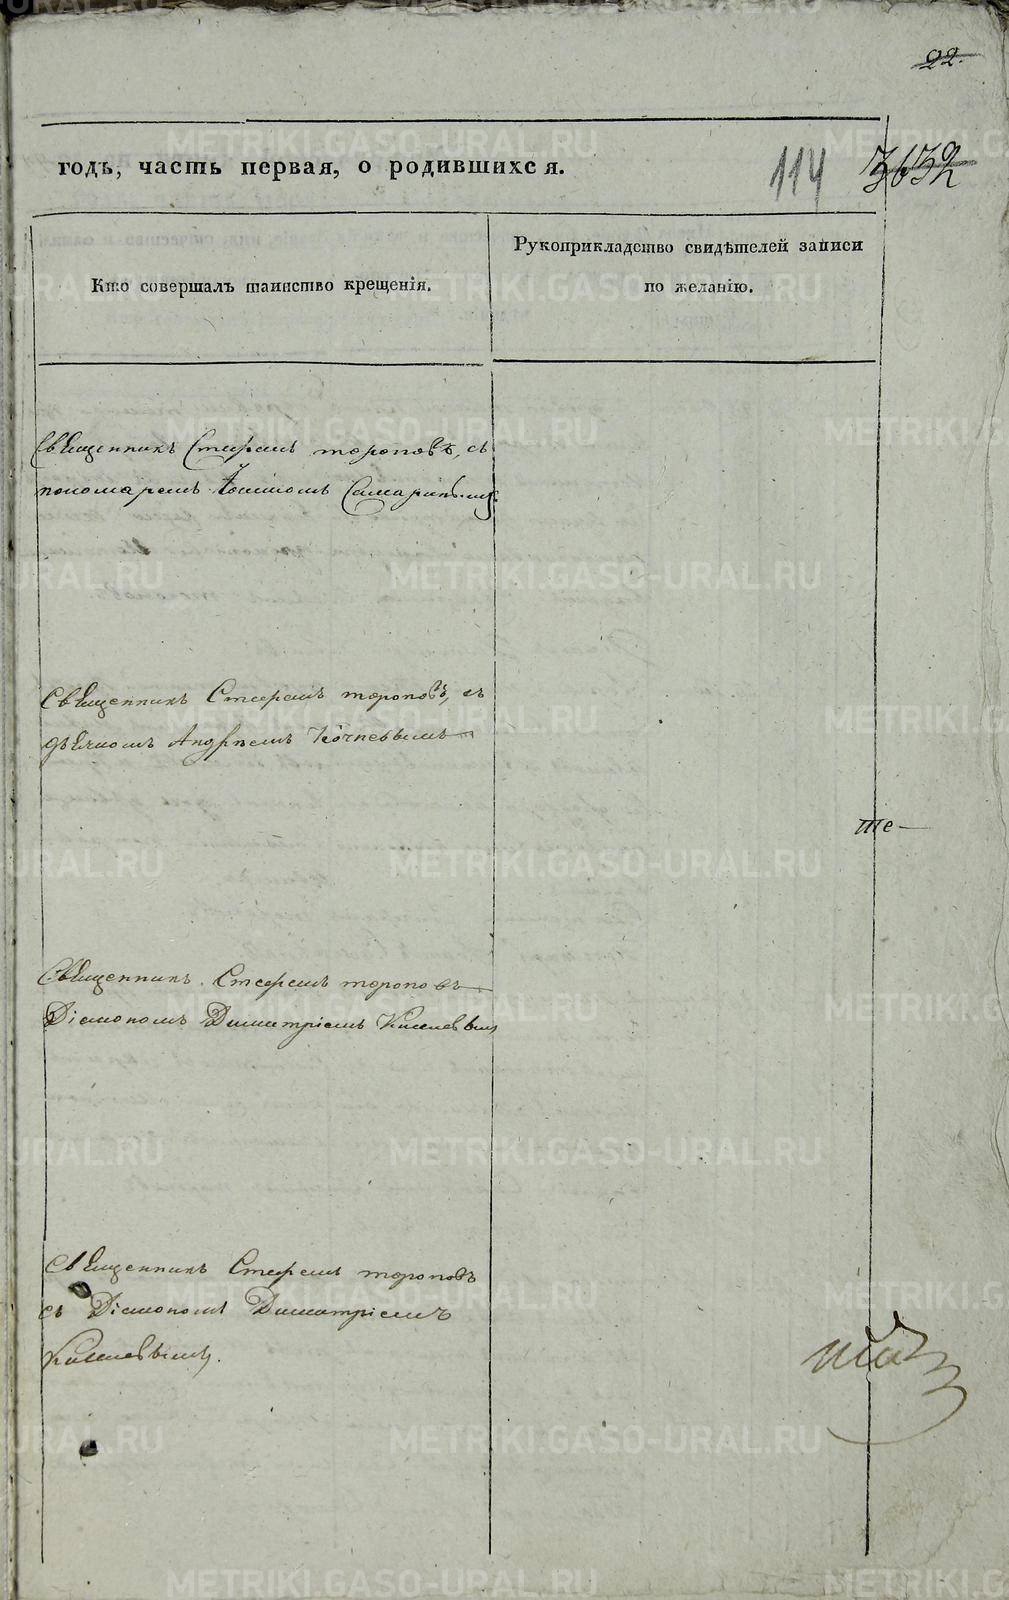 22.
годъ, часть первая, о родившихся.
114 3632
Кто совершалъ таинство крещенія.
Рукоприкладство свидѣтелей записи
по желанію.
Священникъ Стефанъ тороповъ, съ
пономаремъ Самаринымъ.
Священникъ Стефанъ тороповъ, съ
дьячкомъ Андреемъ Кочневымъ
те
Священникъ Стефанъ тороповъ
Діакономъ Димитріемъ Киселевым
Священникъ Стефанъ тороповъ
съ Діакономъ Димитріемъ
Киселевымъ.
METRIKI.GASO-URAL.RU